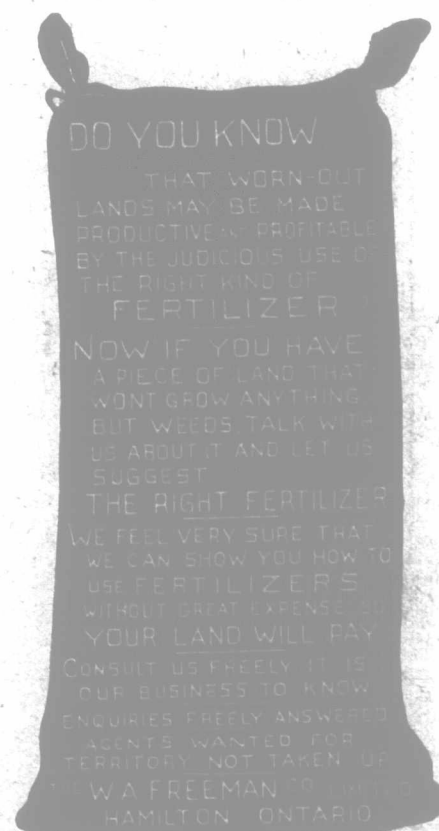 DO YOU KNOW
THAT WORN-OUT
LANDS MAY BE MADE
PRODUCTIVE AND PROFITABLE
BY THE JUDICIOUS USE OF
THE RIGHT KIND OF
FERTILIZER
NOW IF YOU HAVE
A PIECE OF LAND THAT
WONT GROW ANYTHING
BUT WEEDS, TALK WITH
US ABOUT IT AND LET US
SUGGEST
THE RIGHT FERTILIZER
WE FEEL VERY SURE THAT
WE CAN SHOW YOU HOW TO
USE FERTILIZERS
WITHOUT GREAT EXPENSE SO
YOUR LAND WILL PAY
CONSULT US FREELY IT IS
OUR BUSINESS TO KNOW
ENQUIRIES FREELY ANSWERED
AGENTS WANTED FOR
TERRITORY NOT TAKEN UP
THE W.A. FREEMAN CO. LIMITED
HAMILTON ONTARIO